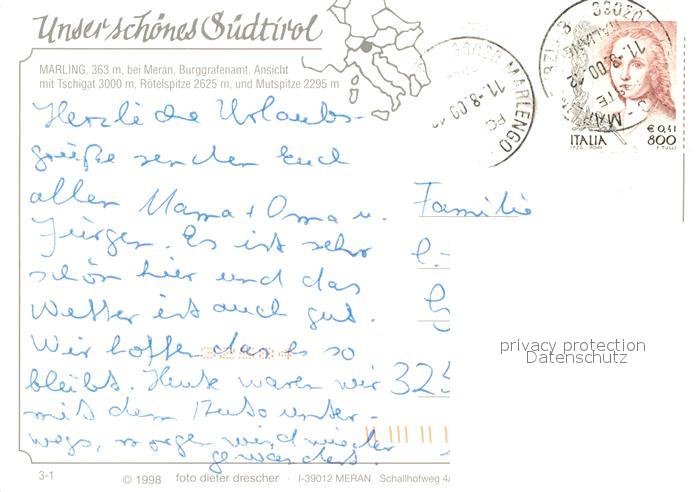 Unser schönes Südtirol
MARLING, 363 m, bei Meran, Burggrafenamt. Ansicht
mit Tschigat 3000 m, Rötelspitze 2625 m, und Mutspitze 2295 m
39020 MARLENGO
11-8-00
PC
39020
11-8-00
€ 0,41
ITALIA 800
Herzliche Urlaubs-
grüße senden Euch
allen Mama + Oma u.
Jürgen. Es ist sehr
schön hier und das
Wetter ist auch gut.
Wir hoffen das es so
bleibt. Heute waren wir
mit dem Auto unter-
wegs, morgen wird wieder
gewandert.
Familie
325
privacy protection
Datenschutz
3-1
© 1998 foto dieter drescher · I-39012 MERAN Schallhofweg